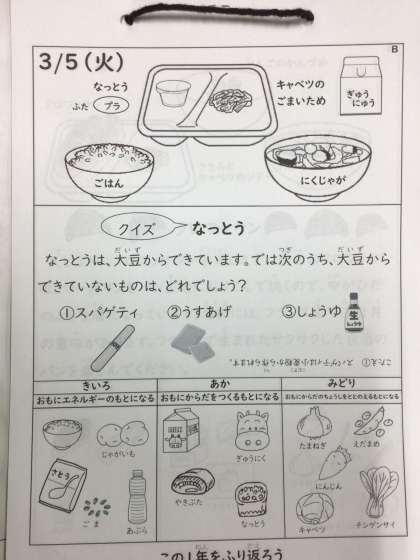 B
3/5(火)
なっとう
ふた プラ
キャベツの
ごまいため
ぎゅう
にゅう
ごはん
にくじゃが
クイズ なっとう
なっとうは、大豆からできています。では次のうち、大豆から
できていないものは、どれでしょう?
①スパゲティ ②うすあげ ③しょうゆ
生
しょうゆ
こたえ① スパゲティは小麦粉から作られます。
きいろ あか みどり
おもにエネルギーのもとになる おもにからだをつくるもとになる おもにからだのちょうしをととのえるもとになる
じゃがいも
ぎゅうにく
たまねぎ
えだまめ
さとう
ごま
あぶら
やきぶた
なっとう
にんじん
キャベツ
チンゲンサイ
この1年をふり返ろう